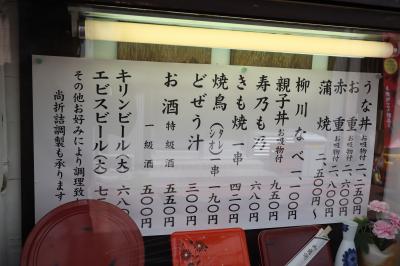 うな丼 お吸物付 二、二五〇円
お重 お吸物付 二、六〇〇円
赤重 二、八〇〇円
蒲焼 二、五〇〇円〜
柳川なべ 一、一〇〇円
親子丼 お吸物付 九五〇円
寿乃もの 六八〇円
きも焼 一串 四二〇円
焼鳥 (タレ シオ) 一串 一九〇円
どぜう汁 三〇〇円
お酒 特級酒 五五〇円
一級酒 五〇〇円
キリンビール(大) 六八
エビスビール(大) 七
その他お好みにより調理致
尚折詰調製も承ります